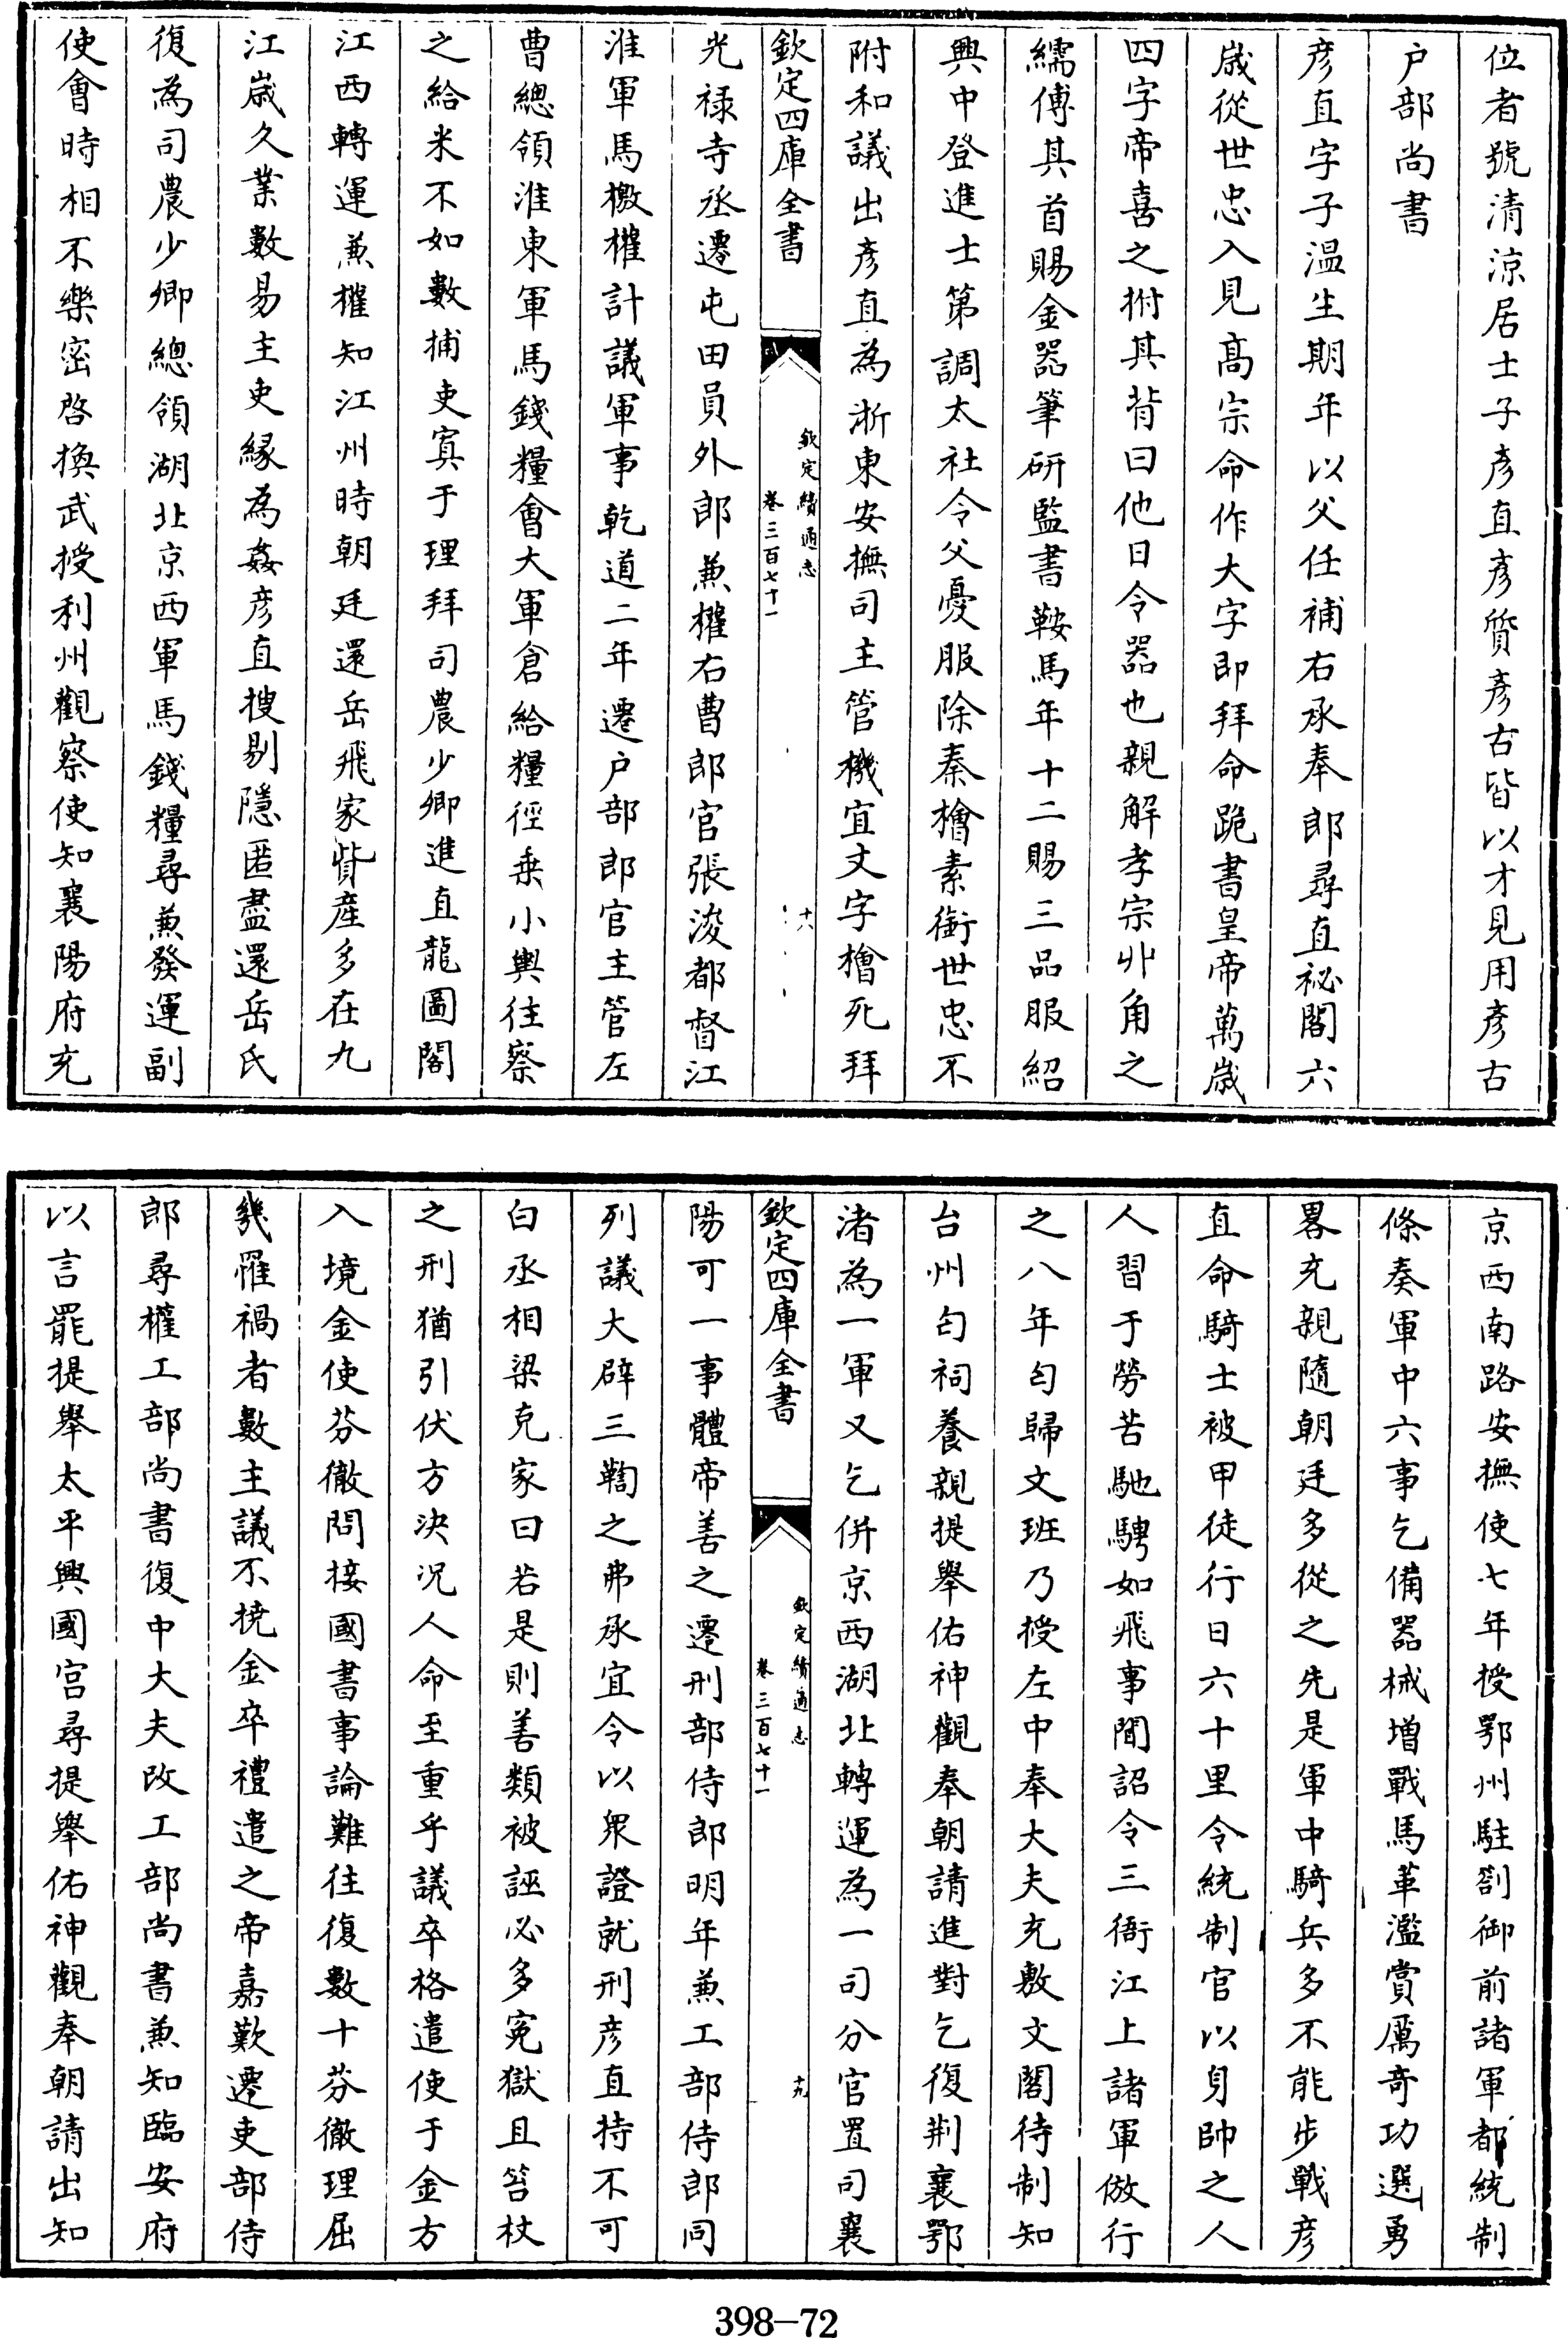 位者號清涼居士子彥直彥質彥古皆以才見用彥古
户部尚書
彥直字子溫生期年以父任補右承奉郎尋直祕閣六
歲從世忠入見髙宗命作大字即拜命跪書皇帝萬歲
四字帝喜之拊其背曰他日令器也親解孝宗丱角之
繻傅其首賜金器筆研監書鞍馬年十二賜三品服紹
興中登進士第調太社令父憂服除秦檜素銜世忠不
附和議出彥直為浙東安撫司主管機宜文字檜死拜
欽定四庫全書
欽定續通志
卷三百七十一
十八
光禄寺丞遷屯田員外郎兼權右曹郎官張浚都督江
淮軍馬檄權計議軍事乾道二年遷户部郎官主管左
曹總領淮東軍馬錢糧會大軍倉給糧徑乗小輿往察
之給米不如數捕吏寘于理拜司農少卿進直龍圖閣
江西轉運兼權知江州時朝廷還岳飛家貲産多在九
江歲久業數易主吏緣為姦彥直搜剔隱匿盡還岳氏
復為司農少卿總領湖北京西軍馬錢糧尋兼發運副
使會時相不樂密啓換武授利州觀察使知襄陽府充
京西南路安撫使七年授鄂州駐劄御前諸軍都統制
條奏軍中六事乞備器械增戰馬革濫賞厲奇功選勇
畧充親隨朝廷多從之先是軍中騎兵多不能步戰彥
直命騎士被甲徒行日六十里令統制官以身帥之人
人習于勞苦馳騁如飛事聞詔令三衙江上諸軍倣行
之八年匄歸文班乃授左中奉大夫充敷文閣待制知
台州匄祠養親提舉佑神觀奉朝請進對乞復荆襄鄂
渚為一軍又乞併京西湖北轉運為一司分官置司襄
欽定四庫全書
欽定續通志
卷三百七十一
十九
陽可一事體帝善之遷刑部侍郎明年兼工部侍郎同
列議大辟三鞫之弗承宜令以眾證就刑彥直持不可
白丞相梁克家曰若是則善類被誣必多寃獄且笞杖
之刑猶引伏方決況人命至重乎議卒格遣使于金方
入境金使芬徹問接國書事論難往復數十芬徹理屈
幾罹禍者數主議不撓金卒禮遣之帝嘉歎遷吏部侍
郎尋權工部尚書復中大夫改工部尚書兼知臨安府
以言罷提舉太平興國宫尋提舉佑神觀奉朝請出知
398-72